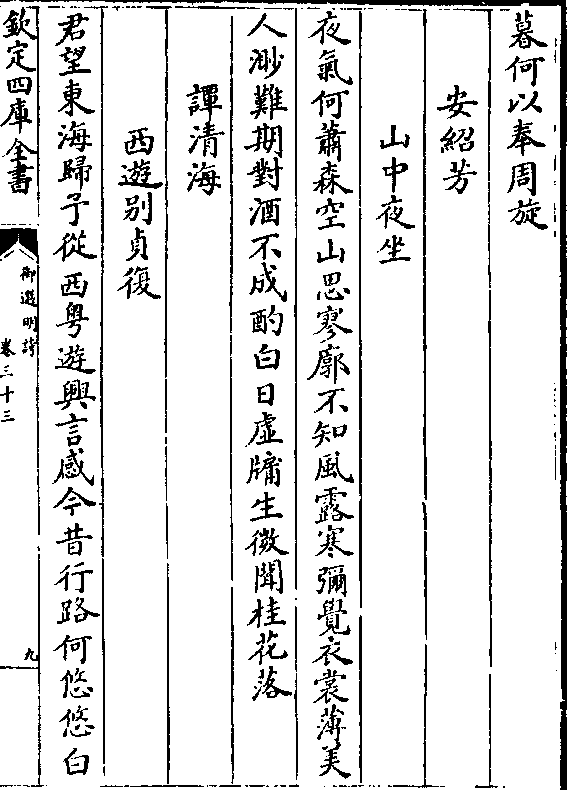 暮何以奉周旋
安紹芳
山中夜坐
夜氣何蕭森空山思寥廓不知風露寒彌覺衣裳薄美
人渺難期對酒不成酌白日虛牖生微聞桂花落
譚清海
西遊别貞復
君望東海歸予從西粤遊興言感今昔行路何悠悠白
欽定四庫全書
御選明詩
卷三十三
九